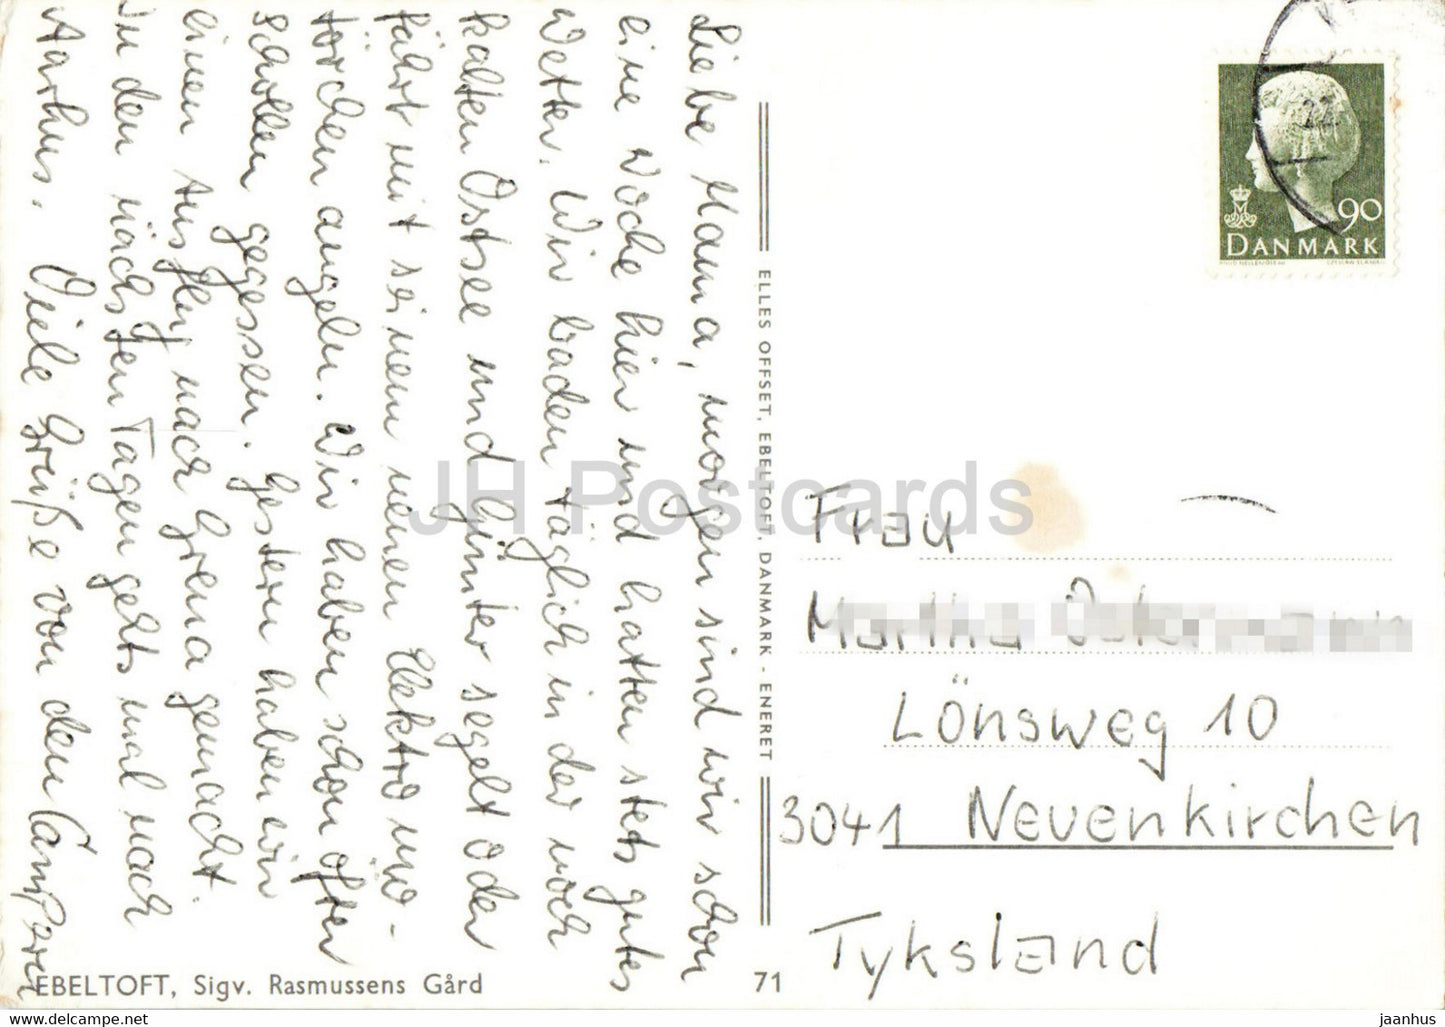 Liebe Mama, morgen sind wir schon
eine Woche hier und hatten stets gutes
Wetter. Wir baden täglich in der noch
kalten Ostsee und Günter segelt oder
fährt mit seinem neuen Elektromo-
törchen angeln. Wir haben schon öfter
Schollen gegessen. Gestern haben wir
einen Ausflug nach Grena gemacht.
In den nächsten Tagen gehts mal nach
Aarhus. Viele Grüße von den Campern
ELLES OFFSET, EBELTOFT, DANMARK - ENERET
EBELTOFT, Sigv. Rasmussens Gård
71
22
90
DANMARK
Frau
Lönsweg 10
3041 Neuenkirchen
Tyksland
JH Postcards
www.delcampe.net
jaanhus